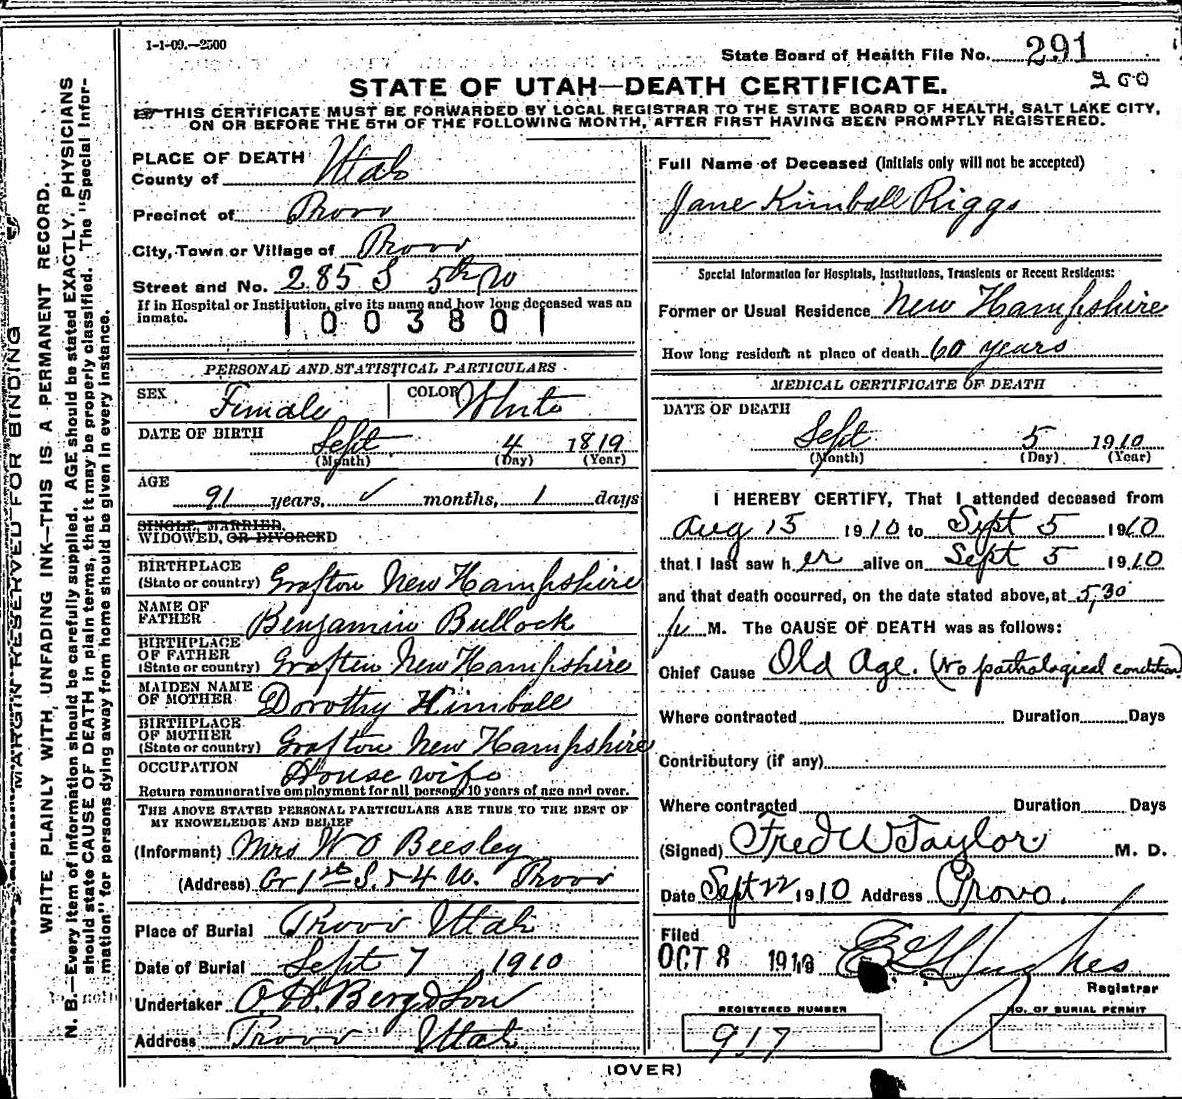 1-1-09.—2500
State Board of Health File No. 291
200
STATE OF UTAH—DEATH CERTIFICATE.
THIS CERTIFICATE MUST BE FORWARDED BY LOCAL REGISTRAR TO THE STATE BOARD OF HEALTH, SALT LAKE CITY,
ON OR BEFORE THE 5TH OF THE FOLLOWING MONTH, AFTER FIRST HAVING BEEN PROMPTLY REGISTERED.
MARGIN RESERVED FOR BINDING
WRITE PLAINLY WITH, UNFADING INK—THIS IS A PERMANENT RECORD.
N. B.—Every item of information should be carefully supplied. AGE should be stated EXACTLY. PHYSICIANS
should state CAUSE OF DEATH in plain terms, that it may be properly classified. The "Special Infor-
mation" for persons dying away from home should be given in every instance.
PLACE OF DEATH
County of Utah
Precinct of Provo
City, Town or Village of Provo
Street and No. 285 S 5th W
If in Hospital or Institution, give its name and how long deceased was an
inmate.
1003801
PERSONAL AND STATISTICAL PARTICULARS
SEX Female COLOR White
DATE OF BIRTH Sept 4 1819
(Month) (Day) (Year)
AGE 91 years, ✓ months, 1 days
SINGLE, MARRIED,
WIDOWED, OR DIVORCED
BIRTHPLACE
(State or country) Grafton New Hampshire
NAME OF
FATHER Benjamin Bullock
BIRTHPLACE
OF FATHER
(State or country) Grafton New Hampshire
MAIDEN NAME
OF MOTHER Dorothy Kimball
BIRTHPLACE
OF MOTHER
(State or country) Grafton New Hampshire
OCCUPATION House wife
Return remunerative employment for all persons 10 years of age and over.
THE ABOVE STATED PERSONAL PARTICULARS ARE TRUE TO THE BEST OF
MY KNOWELEDGE AND BELIEF
(Informant) Mrs W O Beesley
(Address) Cr 1st S. 5 4 W. Provo
Place of Burial Provo Utah
Date of Burial Sept 7 1910
Undertaker O. H. Berg & Son
Address Provo Utah
Full Name of Deceased (Initials only will not be accepted)
Jane Kimball Riggs
Special Information for Hospitals, Institutions, Transients or Recent Residents:
Former or Usual Residence New Hampshire
How long resident at place of death 60 years
MEDICAL CERTIFICATE OF DEATH
DATE OF DEATH
Sept 5 1910
(Month) (Day) (Year)
I HEREBY CERTIFY, That I attended deceased from
Aug 15 1910 to Sept 5 1910
that I last saw her alive on Sept 5 1910
and that death occurred, on the date stated above, at 5,30
p. M. The CAUSE OF DEATH was as follows:
Chief Cause Old Age. (No pathological condition)
Where contracted Duration Days
Contributory (if any)
Where contracted Duration Days
(Signed) Fred W Taylor M. D.
Date Sept 22 1910 Address Provo.
Filed
OCT 8 1910 Hughes
Registrar
REGISTERED NUMBER NO. OF BURIAL PERMIT
917
(OVER)